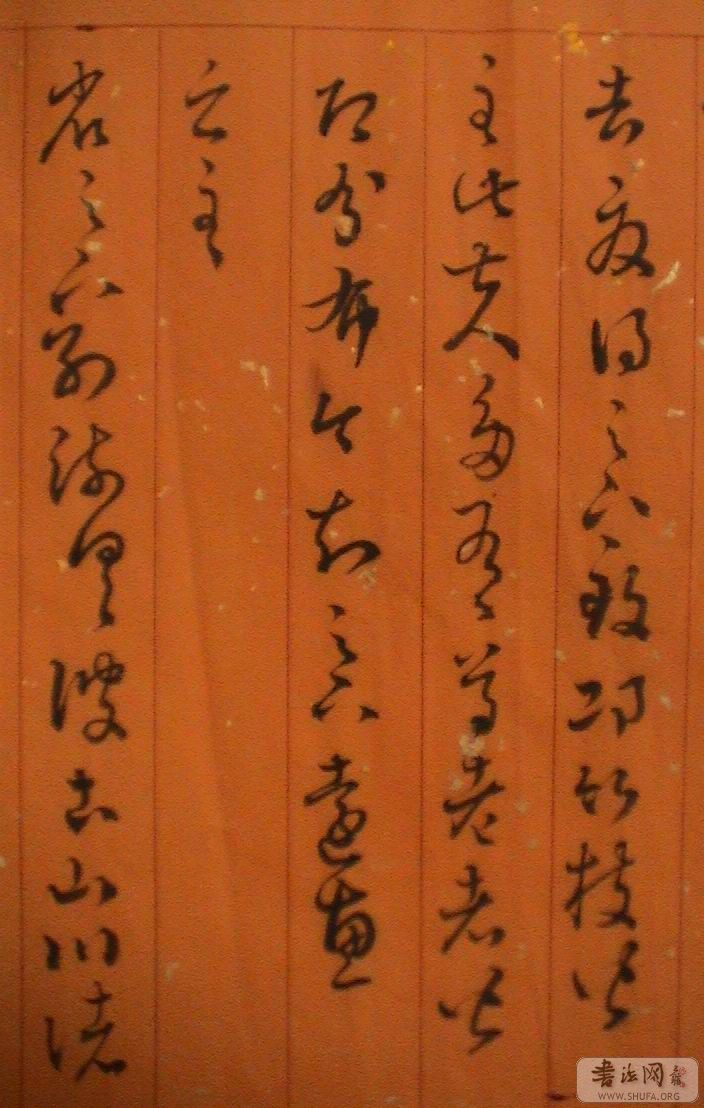 去夏得足下致邛竹杖皆
至此士人多有尊老者皆
即分布令知足下遠惠
之至
省足下別疏具彼土山川諸
書法网
WWW.SHUFA.ORG